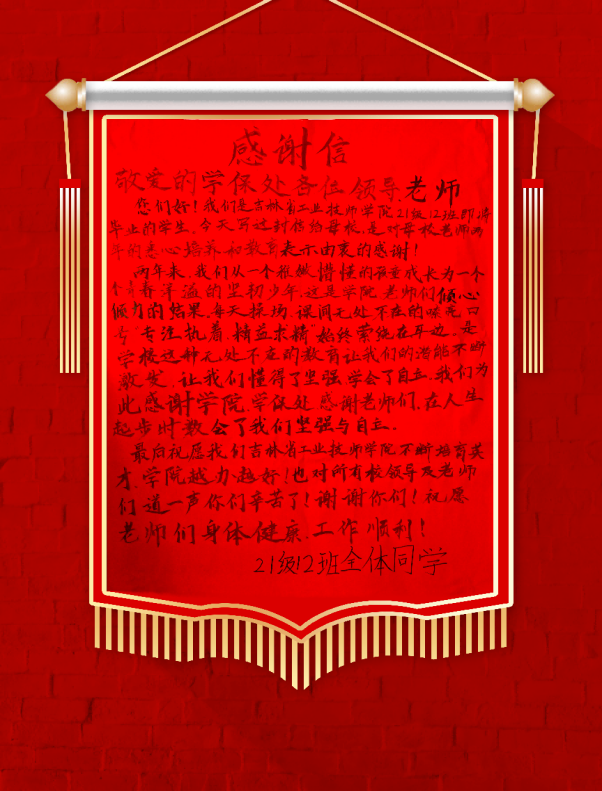 感谢信
敬爱的学保处各位领导,老师
您们好!我们是吉林省工业技师学院21级12班即将
毕业的学生,今天写这封信给母校,是对母校老师两
年的悉心培养和教育表示由衷的感谢!
两年来,我们从一个很懵懂的孩童成长为一个
个青春洋溢的坚韧少年,这是学院老师们倾心
倾力的结果,每天操场、课间无处不在的嘹亮口
号"专注执着,精益求精"始终萦绕在耳边,是
学校这种无处不在的教育让我们的潜能不断
激发,让我们懂得了坚强,学会了自立,我们为
此感谢学院,学保处,感谢老师们,在人生
起步时教会了我们坚强与自立.
最后祝愿我们吉林省工业技师学院不断培育英
才,学院越办越好!也对所有校领导及老师
们道一声你们辛苦了!谢谢你们!祝愿
老师们身体健康,工作顺利!
21级12班全体同学